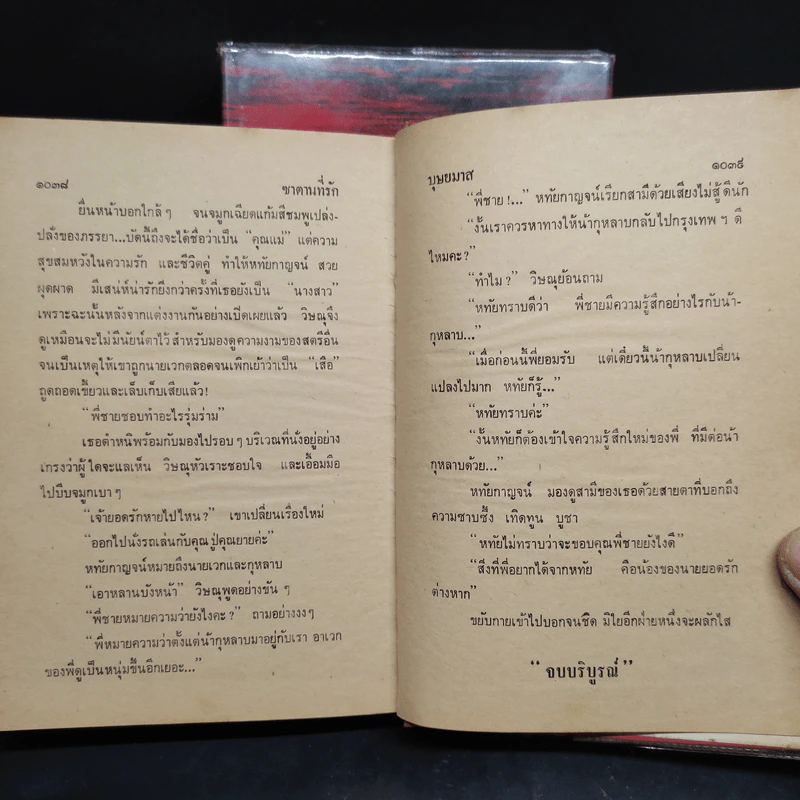 ๑๐๓๘ ซาตานที่รัก
ยื่นหน้าบอกใกล้ๆ จนจมูกเฉียดแก้มสีชมพูเปล่ง-
ปลั่งของภรรยา...บัดนี้ถึงจะได้ชื่อว่าเป็น “คุณแม่” แต่ความ
สุขสมหวังในความรัก และชีวิตคู่ ทำให้หทัยกาญจน์ สวย
ผุดผาด มีเสน่ห์น่ารักยิ่งกว่าครั้งที่เธอยังเป็น “นางสาว”
เพราะฉะนั้นหลังจากแต่งงานกันอย่างเปิดเผยแล้ว วิษณุจึง
ดูเหมือนจะไม่มีนัยน์ตาไว้ สำหรับมองดูความงามของสตรีอื่น
จนเป็นเหตุให้เขาถูกนายเวกตลอดจนเพิกเย้าว่าเป็น “เสือ”
ถูดถอดเขี้ยวและเล็บเก็บเสียแล้ว!
“พี่ชายชอบทำอะไรรุ่มร่าม”
เธอตำหนิพร้อมกับมองไปรอบๆ บริเวณที่นั่งอยู่อย่าง
เกรงว่าผู้ใดจะแลเห็น วิษณุหัวเราะชอบใจ และเอื้อมมือ
ไปบีบจมูกเบาๆ
“เจ้ายอดรักหายไปไหน?” เขาเปลี่ยนเรื่องใหม่
“ออกไปนั่งรถเล่นกับคุณปู่คุณยายค่ะ”
หทัยกาญจน์หมายถึงนายเวกและกุหลาบ
“เอาหลานบังหน้า” วิษณุพูดอย่างขันๆ
“พี่ชายหมายความว่ายังไงคะ?” ถามอย่างงงๆ
“พี่หมายความว่าตั้งแต่น้ากุหลาบมาอยู่กับเรา อาเวก
ของพี่ดูเป็นหนุ่มขึ้นอีกเยอะ...”
บุษยมาส ๑๐๓๙
“พี่ชาย!...” หทัยกาญจน์เรียกสามีด้วยเสียงไม่สู้ดีนัก
“งั้นเราควรหาทางให้น้ากุหลาบกลับไปกรุงเทพฯ ดี
ไหมคะ?”
“ทำไม?” วิษณุย้อนถาม
“หทัยทราบดีว่า พี่ชายมีความรู้สึกอย่างไรกับน้า-
กุหลาบ...”
“เมื่อก่อนนี้พี่ยอมรับ แต่เดี๋ยวนี้น้ากุหลาบเปลี่ยน
แปลงไปมาก หทัยก็รู้...”
“หทัยทราบค่ะ”
“งั้นหทัยก็ต้องเข้าใจความรู้สึกใหม่ของพี่ ที่มีต่อน้า
กุหลาบด้วย...”
หทัยกาญจน์ มองดูสามีของเธอด้วยสายตาที่บอกถึง
ความซาบซึ้ง เทิดทูน บูชา
“หทัยไม่ทราบว่าจะขอบคุณพี่ชายยังไงดี”
“สิ่งที่พี่อยากได้จากหทัย คือน้องของนายยอดรัก
ต่างหาก”
ขยับกายเข้าไปบอกจนชิด มิไยอีกฝ่ายหนึ่งจะผลักไส
“จบบริบูรณ์”